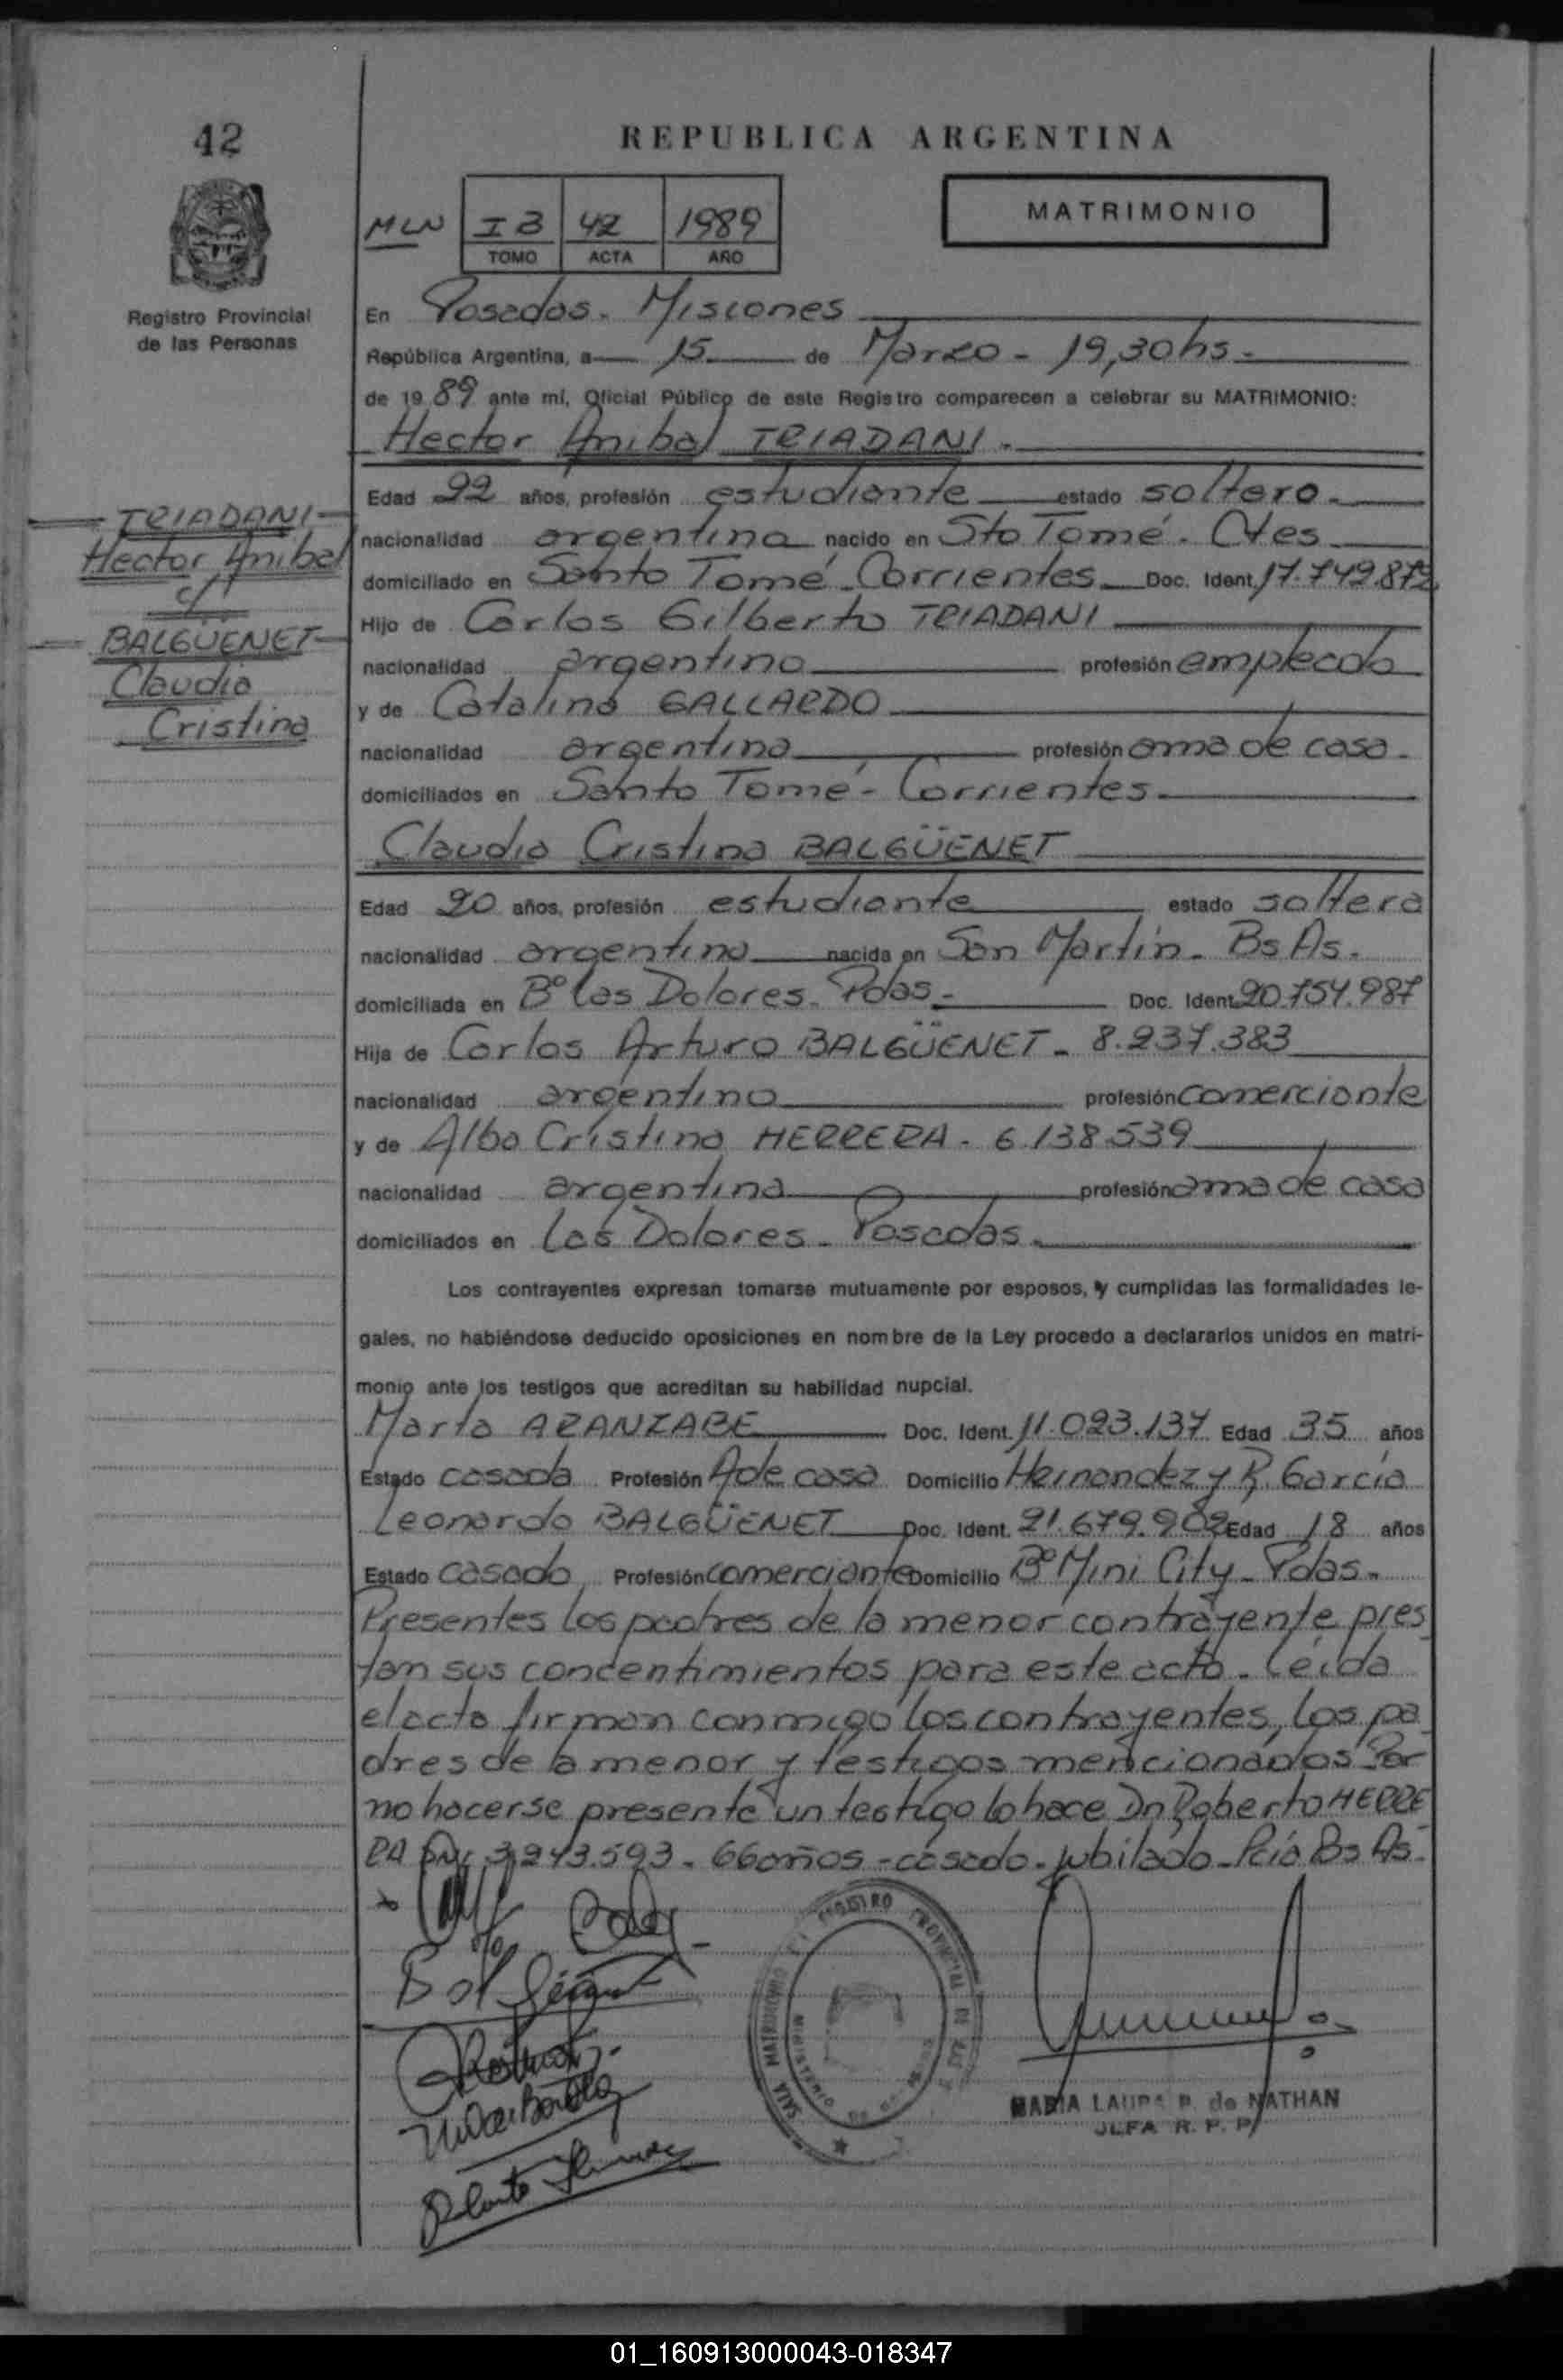 42
REPUBLICA ARGENTINA
MLN
I B
42
1989
TOMO
ACTA
AÑO
MATRIMONIO
Registro Provincial
de las Personas
En Posadas - Misiones
República Argentina, a 15 de Marzo - 19,30 hs -
de 19 89 ante mí, Oficial Público de este Registro comparecen a celebrar su MATRIMONIO:
Hector Anibal TRIADANI -
TRIADANI
Hector Anibal
c/
BALGÜENET
Claudia
Cristina
Edad 22 años, profesión estudiante estado soltero -
nacionalidad argentina nacido en Sto Tomé - Ctes
domiciliado en Santo Tomé - Corrientes Doc. Ident. 17.749.872
Hijo de Carlos Gilberto TRIADANI
nacionalidad argentino profesión empleado
y de Catalina GALLARDO
nacionalidad argentina profesión ama de casa -
domiciliados en Santo Tomé - Corrientes -
Claudia Cristina BALGÜENET
Edad 20 años, profesión estudiante estado soltera
nacionalidad argentina nacida en San Martín - Bs As -
domiciliada en Bº Las Dolores - Pdas - Doc. Ident. 20.754.987
Hija de Carlos Arturo BALGÜENET - 8.237.383
nacionalidad argentino profesión comerciante
y de Alba Cristina HERRERA - 6.138.539
nacionalidad argentina profesión ama de casa
domiciliados en Las Dolores - Posadas -
Los contrayentes expresan tomarse mutuamente por esposos, y cumplidas las formalidades le-
gales, no habiéndose deducido oposiciones en nombre de la Ley procedo a declararlos unidos en matri-
monio ante los testigos que acreditan su habilidad nupcial.
Marta ARANZABE Doc. Ident. 11.023.137 Edad 35 años
Estado casada Profesión A de casa Domicilio Hernandez y R. García
Leonardo BALGÜENET Doc. Ident. 21.679.902 Edad 18 años
Estado casado Profesión comerciante Domicilio Bº Mini City - Pdas -
Presentes los padres de la menor contrayente, pres
tan sus concentimientos para este acto - Leída
el acta firman conmigo los contrayentes, los pa
dres de la menor y testigos mencionados Por
no hacerse presente un testigo lo hace Dn Roberto HERRE
RA 3.243.593 - 66 años - casado - jubilado - Pcia Bs As -
REGISTRO PROVINCIAL DE LAS
SALA MATRIMONIO
MINISTERIO DE
MARIA LAURA P. de NATHAN
JEFA R. P. P.
01_160913000043-018347